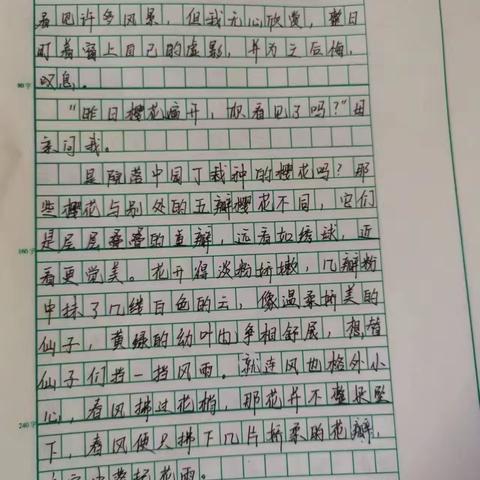 看见许多风景，但我无心欣赏，整日
盯着窗上自己的虚影，并为之后悔，
叹息。
80字
“昨日樱花盛开，你看见了吗？”母
亲问我。
是院落中园丁栽种的樱花吗？那
些樱花与别处的五瓣樱花不同，它们
160字
是层层叠叠的重瓣，远看如绣球，近
看更觉美。花开得淡粉娇嫩，几瓣粉
中抹了几缕白色的云，像温柔娇美的
仙子，黄绿的幼叶也争相舒展，想替
仙子们挡一挡风雨。就连风也格外小
心，春风拂过花梢，那花并不整朵坠
240字
下，春风便只拂下几片娇柔的花瓣，
花雨。